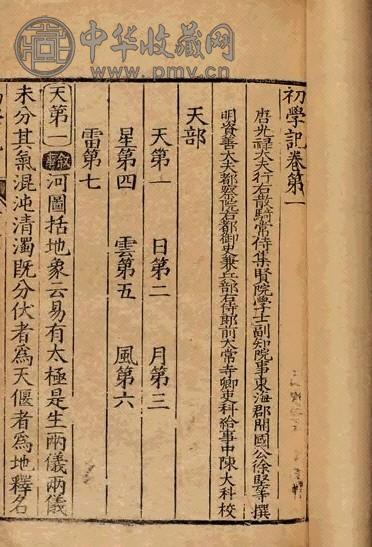 中华收藏网
www.pmv.cn
初學記卷第一
唐光祿大夫行右散騎常侍集賢院學士副知院事東海郡開國公徐堅等撰
明資善大夫都察院右都御史兼兵部右侍郎前太常寺卿吏科給事中陳大科校
天部
天第一 日第二 月第三
星第四 雲第五 風第六
雷第七
天第一 敘事 河圖括地象云易有太極是生兩儀兩儀
未分其氣混沌清濁既分伏者為天偃者為地釋名